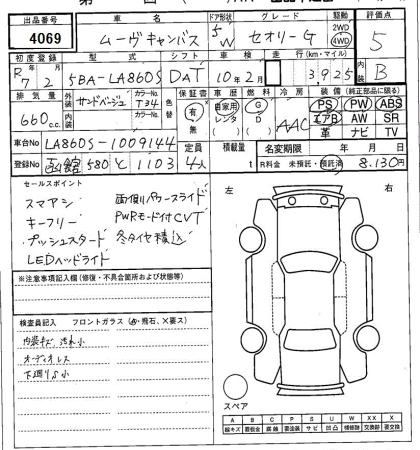 出品番号 車名 ドア形状 グレード 駆動 評価点
4069 ムーヴキャンバス 5/W セオリーG 2WD 4WD 5
初度登録 型式 シフト 車検 走行(km・マイル) 内装
R7 2月 5BA-LA860S DAT 10年2月 3,925 B
排気量 外装 カラーNo. 色替 保証書 車歴 燃料 冷房 装備(純正部品に限る)
660cc サンドベージュ T34 有 無 自家用 レンタ D G D AAC PS PW ABS
エアB AW SR
革 ナビ TV
車台No LA860S-1009144 定員 積載量 名変期限 年 月 日
登録No 580 と 1103 4人 t R料金 未預託・預託済 8,130円
セールスポイント
スマアシ 両側パワースライド
キーフリー PWRモード付CVT
プッシュスタート 冬タイヤ積込
LEDヘッドライト
左 右
※注意事項記入欄(修復・不具合箇所および状態等)
検査員記入 フロントガラス(A・飛石、X要ス)
内装キズ、汚れ小
オーディオレス
下廻りS小
スペア
A B C P S U W X XX
線キズ 要板金 腐蝕 要塗装 サビ 凹凸 補修跡 交換跡 要交換